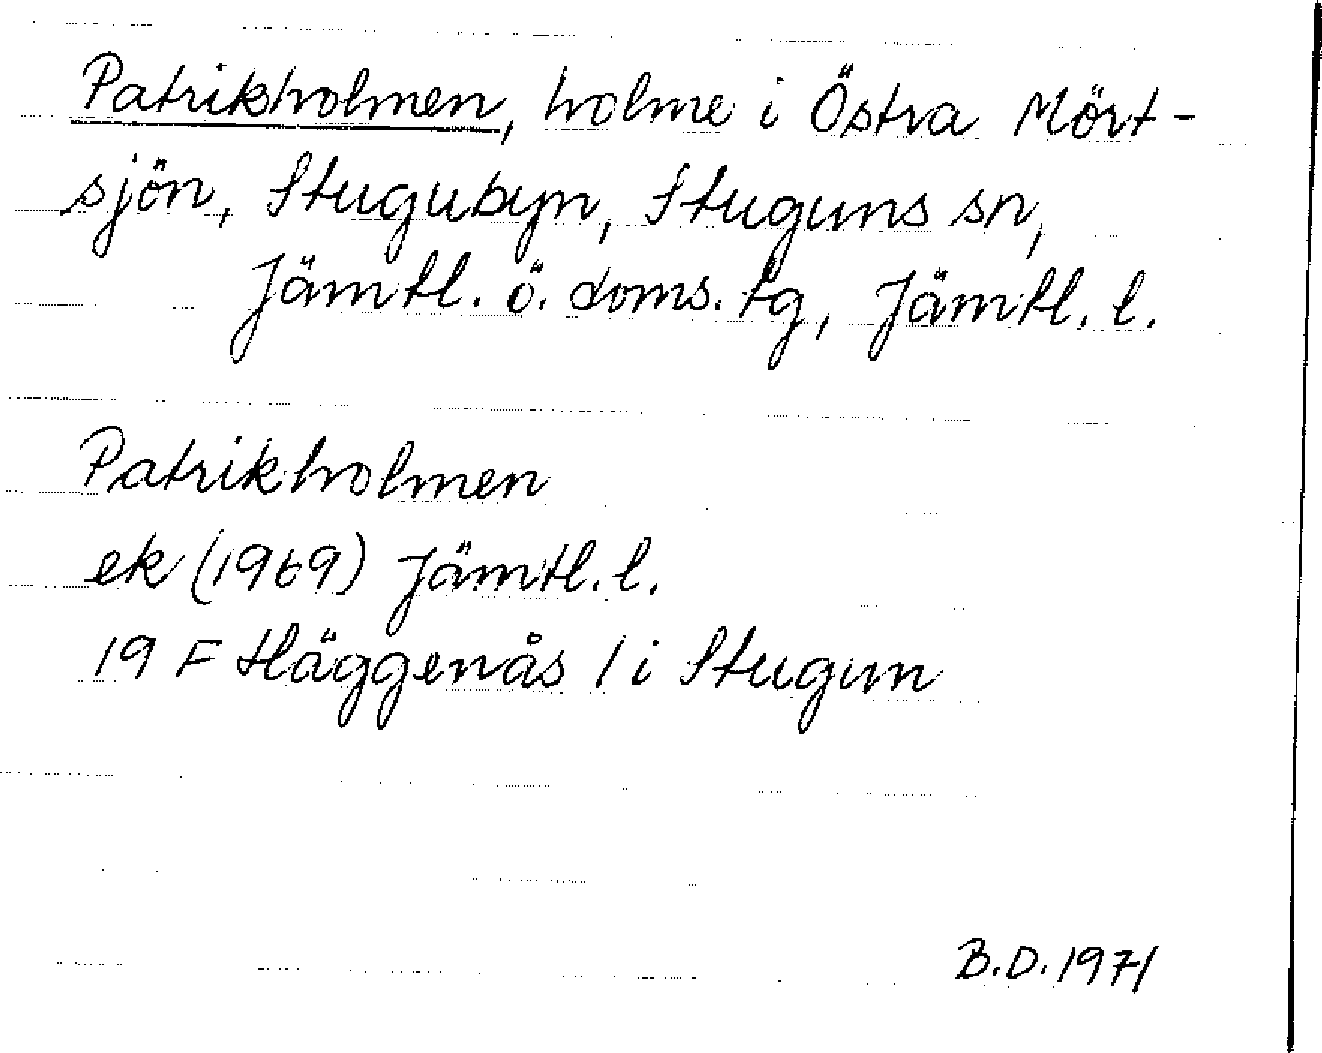 Patrikholmen, holme i Östra Mört-
sjön, Stugubyn, Stuguns sn,
Jämtl. ö. doms. tg, Jämtl. l.
Patrikholmen
ek (1969) Jämtl. l.
19 F Häggenås / i Stugun
B.D. 1971